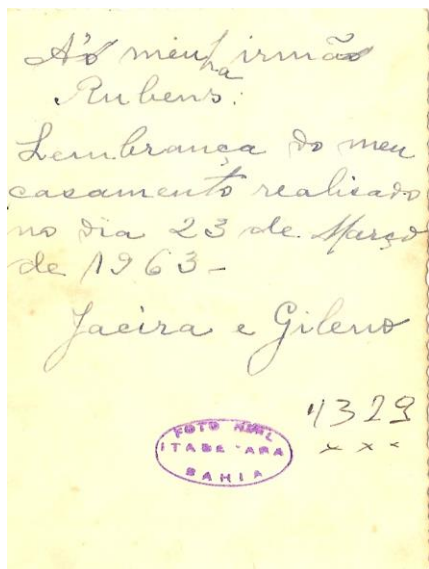 Ao meu irmão
Rubens:
Lembrança do meu
casamento realisado
no dia 23 de Março
de 1963-
Jacira e Gileno
4329
x x x
FOTO
BAHIA